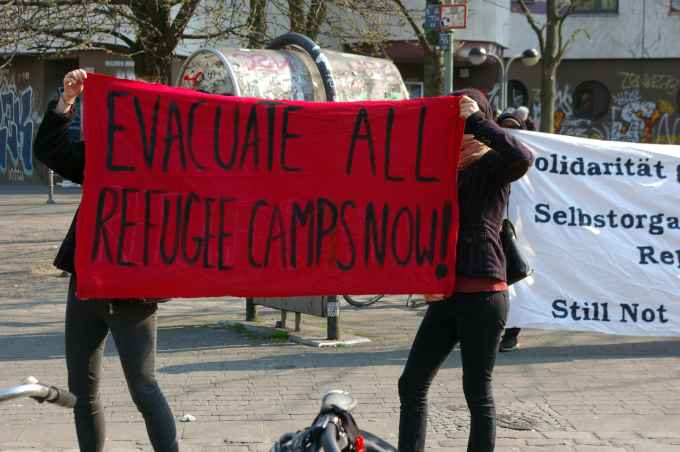 EVACUATE ALL
REFUGEE CAMPS NOW!
olidarität
Selbstorga
Rep
Still Not